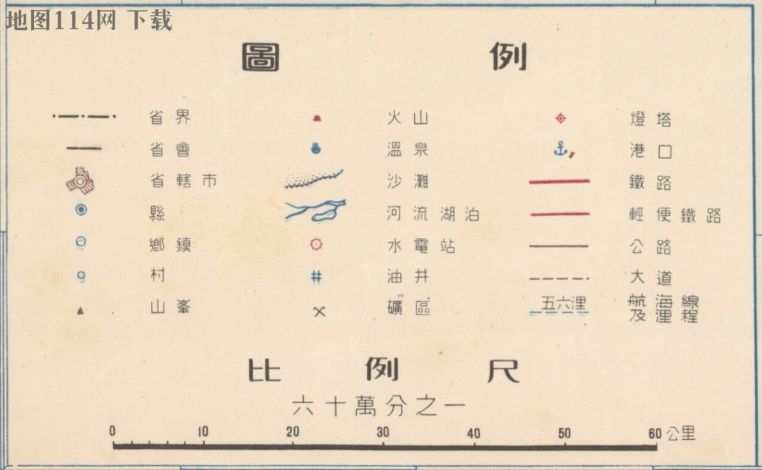 地图114网 下载
圖 例
省界 火山 燈塔
省會 溫泉 港口
省轄市 沙灘 鐵路
縣 河流湖泊 輕便鐵路
鄉鎮 水電站 公路
村 油井 大道
山峯 礦區 五六浬 航海線及浬程
比 例 尺
六十萬分之一
0 10 20 30 40 50 60 公里